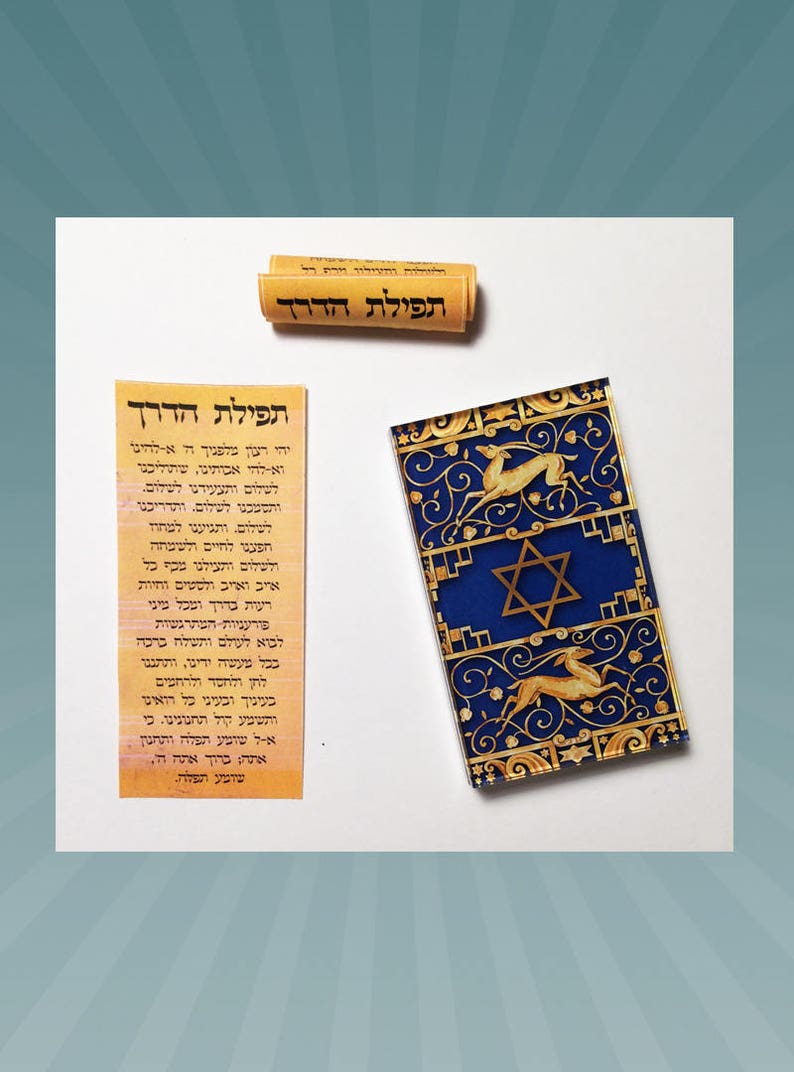 ולשלום ותצילנו מכף כל
תפילת הדרך
תפילת הדרך
יהי רצון מלפניך ה' א-להינו
וא-להי אבותינו, שתוליכנו
לשלום ותצעידנו לשלום.
ותסמכנו לשלום. ותדריכנו
לשלום. ותגיענו למחוז
חפצנו לחיים ולשמחה
ולשלום ותצילנו מכף כל
אויב ואויב ולסטים וחיות
רעות בדרך ומכל מיני
פורעניות המתרגשות
לבוא לעולם ותשלח ברכה
בכל מעשה ידינו, ותתננו
לחן ולחסד ולרחמים
בעיניך ובעיני כל רואינו
ותשמע קול תחנונינו. כי
א-ל שומע תפלה ותחנון
אתה; ברוך אתה ה',
שומע תפלה.